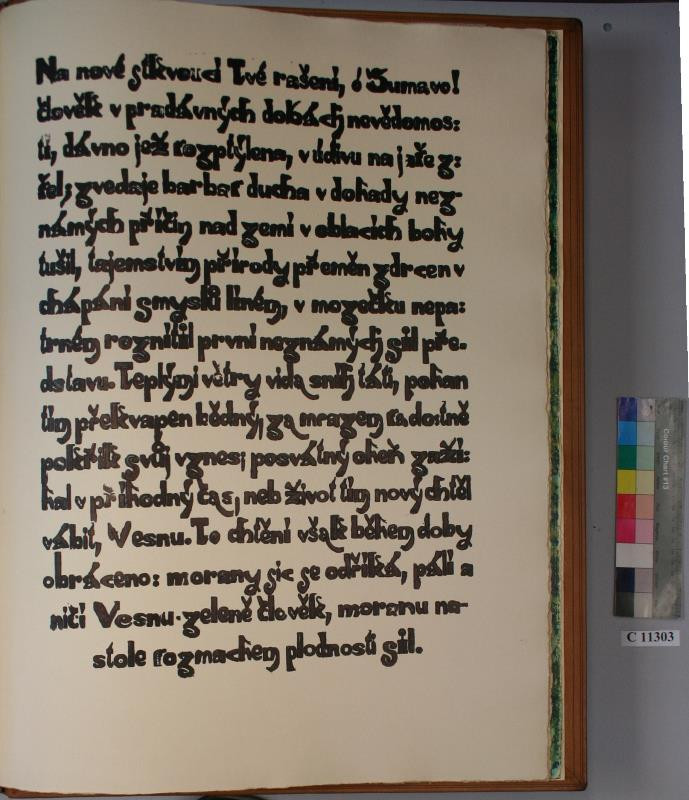 Na nové stkvoucí Tvé rašení, ó Šumavo!
člověk v pradávných dobách nevědomos:
ti, dávno jež rozptýlena, v údivu na jaře z:
řel; zvedaje barbar ducha v dohady nez-
námých příčin nad zemí v oblacích bohy
tušil, tajemstvím přírody přeměn zdrcen v
chápání smyslů líném, v mozečku nepa:
trném roznítil první neznámých sil pře-
dstavu. Teplými větry vida sníh táti, pohan
tím překvapen bědný, za mrazem radostně
pokřik svůj vznesl; posvátný oheň zaží:
hal v příhodný čas, neb život tím nový chtěl
vábit, Vesnu. To chtění však během doby
obráceno: morany sic se odříká, pálí a
ničí Vesnu-zeleně člověk, moranu na-
stole rozmachem plodnosti sil.
Colour Chart #13
C 11303